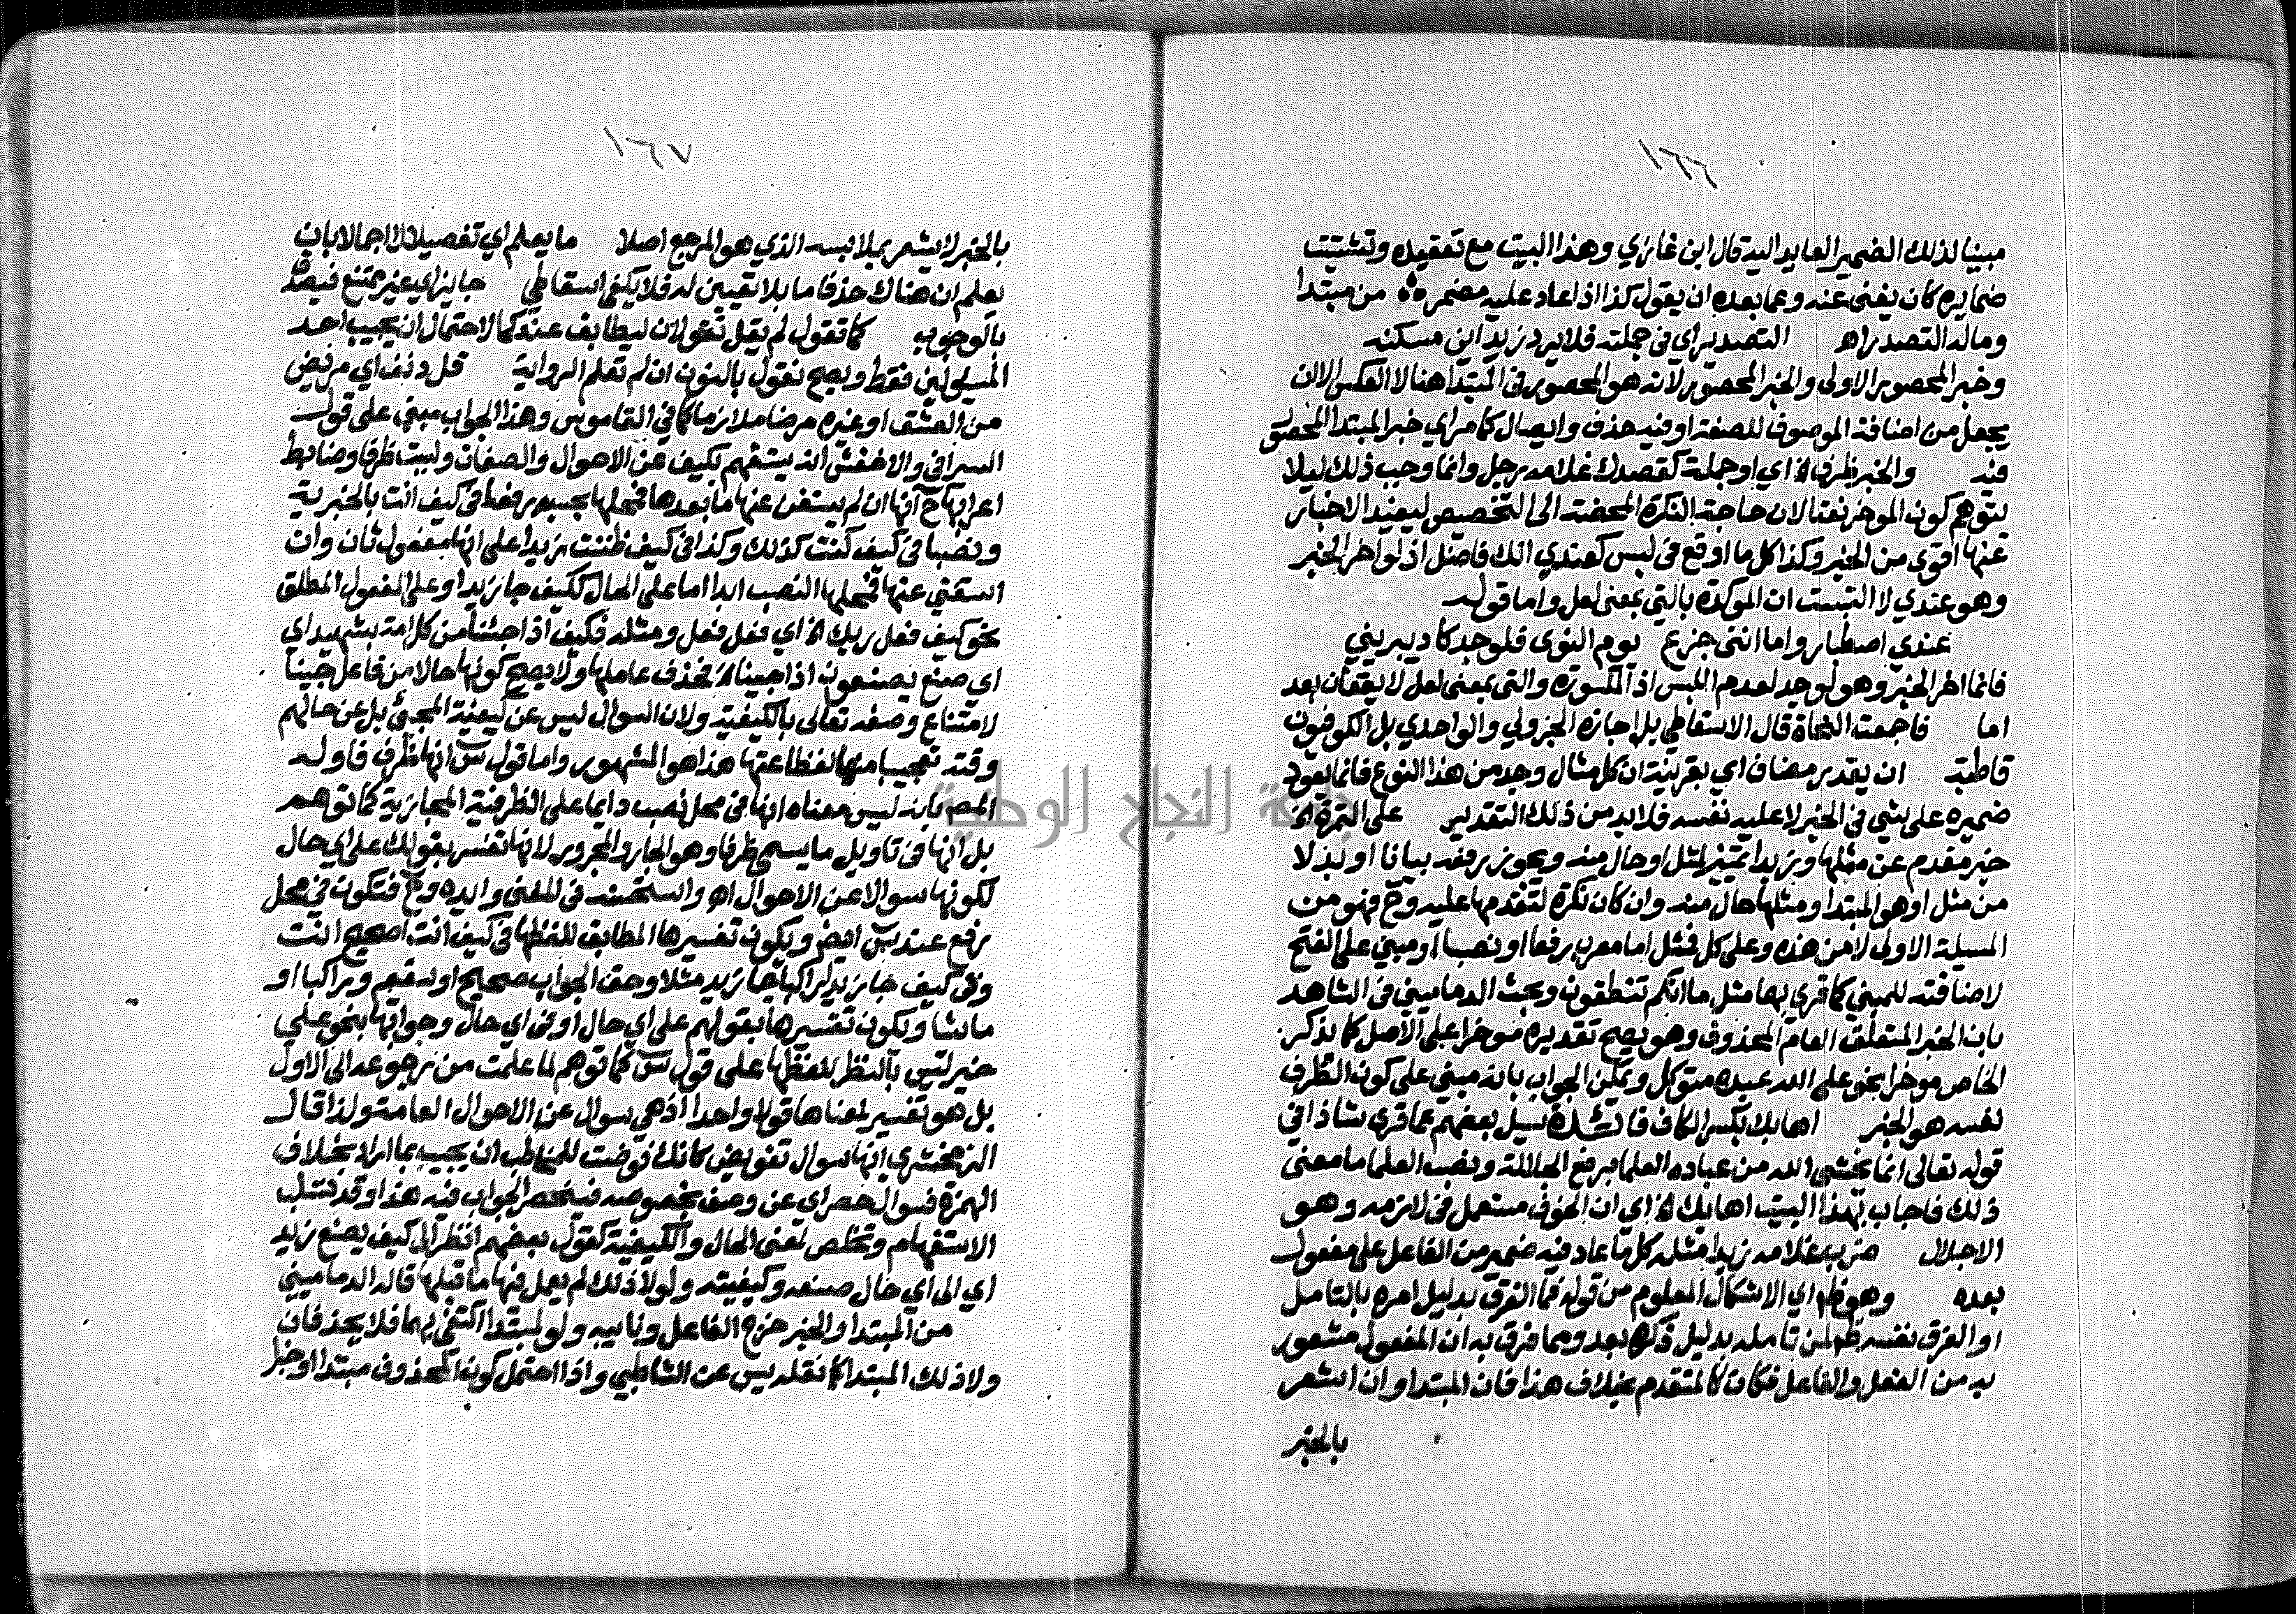 ١٦٦
مبينا لذلك الضمير العايد اليه قال ابن غازي وهذا البيت مع تعقيده وتشتيت
ضمايره كان يغنى عنه وعما بعده ان يقول كذا اذا عاد عليه مضمر من مبتدا
وماله التصدر اه التصدير اي في جملته فلا يرد زيد اين مسكنه
وخبر المحصور الاولى والخبر المحصور لانه هو المحصور في المبتدا هنا لا العكس الا ان
يجعل من اضافة الموصوف للصفة او فيه حذف وايصال كما مر اي خبر المبتدا المحصور
فيه والخبر ظرف اي او جملة كقصدك غلامه رجل وانما وجب ذلك ليلا
يتوهم كون الموخر نعتا لان حاجة النكرة المحضة الى التخصيص ليفيد الاخبار
عنها اقوى من الخبر وكذا كل ما اوقع في لبس كعندي انك فاضل اذ لو اخر الخبر
وهو عندي لا التبست ان الموكدة بالتي بمعنى لعل واما قوله
عندي اصطبار واما انني جزع يوم النوى فلوجد كاد يبريني
فانما اخر الخبر وهو لوجد لعدم اللبس اذ المكسورة والتي بمعنى لعل لا يقعان بعد
اما فاجمعت النحاة قال الاسقاطي بل اجازه الجزولي والواحدي بل الكوفيون
قاطبة ان يقدر مضاف اي بقرينة ان كل مثال وجد من هذا النوع فانما يعود
ضميره على شي في الخبر لا عليه نفسه فلا بد من ذلك التقدير على التمرة الخ
خبر مقدم عن مثلها وزبدا تمييز لمثل او حال منه ويجوز رفعه بيانا او بدلا
من مثل او هو المبتدا ومثلها حال منه وان كان نكرة لتقدمها عليه وح فهو من
المسيلة الاولى لا من هذه وعلى كل فمثل اما معرب رفعا او نصبا او مبني على الفتح
لاضافته للمبني كما قري بهما مثل ما انكم تنطقون وبحث الدماميني في الشاهد
بان الخبر المتعلق العام المحذوف وهو يصح تقديره موخرا على الاصل كما يذكر
الخاص موخرا نحو على الله عبده متوكل ويمكن الجواب بانه مبني على كون الظرف
نفسه هو الخبر اهابك بكسر الكاف فايدة سيل بعضهم عما قري شاذا في
قوله تعالى انما يخشى الله من عباده العلما برفع الجلالة ونصب العلما ما معنى
ذلك فاجاب بهذا البيت اهابك الخ اي ان الخوف مستعمل في لازمه وهو
الاجلال ضرب غلامه زيدا مثله كل ما عاد فيه ضمير من الفاعل على مفعول
بعده وهو ظ اي الاشكال المعلوم من قوله فما الفرق بدليل امره بالتامل
او الفرق نفسه ظ لمن تامله بدليل ذكره بعد ومما فرق به ان المفعول مشعور
به من الفعل والفاعل فكان كالمتقدم بخلاف هذا فان المبتدا وان اشعر
بالخبر
١٦٧
بالخبر لا يشعر بملابسه الذي هو المرجع اصلا ما يعلم اي تفصيلا لا اجمالا بان
يعلم ان هناك حذفا ما بلا تعيين له فلا يكفي اسقاطي جايز اي غير ممتنع فيصدق
بالوجوب كما تقول لم يقل تقولان ليطابق عندكما لاحتمال ان يجيب احد
المسيولين فقط ويصح نقول بالنون ان لم تعلم الرواية قل دنف اي مريض
من العشق او غيره مرضا ملازما كما في القاموس وهذا الجواب مبني على قول
السيرافي والاخفش انه يستفهم بكيف عن الاحوال والصفات وليست ظرفا وضابط
اعرابها ح انها ان لم يستغن عنها ما بعدها فمحلها بحسبه رفعا في كيف انت بالخبرية
ونصبا في كيف كنت كذلك وكذا في كيف ظننت زيدا على انها مفعول ثان وان
استغني عنها فمحلها النصب ابدا اما على الحال ككيف جا زيد او على المفعول المطلق
نحو كيف فعل ربك الخ اي فعل فعل ومثله فكيف اذا جئنا من كل امة بشهيد اي
اي صنع يصنعون اذا جينا الخ فحذف عاملها ولا يصح كونها حالا من فاعل جينا
لامتناع وصفه تعالى بالكيفية ولان السوال ليس عن كيفية المجئ بل عن حالهم
وقته تعجيبا منها لفظاعتها هذا هو المشهور واما قول س انها ظرف فاوله
المص بانه ليس معناه انها في محل نصب دايما على الظرفية المجازية كما توهم
بل انها في تاويل ما يسمى ظرفا وهو الجار والمجرور لانها تفسر بقولك على اي حال
لكونها سوالا عن الاحوال اه واستحسنه في المغني وايده وح فتكون في محل
رفع عند س ايض ويكون تفسيرها المطابق للفظها في كيف انت اصحيح انت
وفي كيف جا زيد اراكبا جا زيد مثلا وحق الجواب صحيح او سقيم وراكبا او
ماشيا ويكون تفسيرها بقولهم على اي حال او في اي حال وجوابها بنحو على
خير ليس بالنظر للفظها على قول س كما توهم لما علمت من رجوعه الى الاول
بل هو تفسير لمعناها قولا واحدا اذ هي سوال عن الاحوال العامة ولذا قال
الزمخشري انها سوال تفويض كانك فوضت للمخاطب ان يجيب بما اراد بخلاف
الهمزة فسوال حصر اي عن وصف بخصوصه فينحصر الجواب فيه هذا وقد تسلب
الاستفهام وتخلص لمعنى الحال والكيفية كقول بعضهم انظر الى كيف يصنع زيد
اي الى اي حال صنعه وكيفيته ولولا ذلك لم يعمل فيها ما قبلها قاله الدماميني
من المبتدا والخبر خرج الفاعل ونايبه ولو لمبتدا اكتفى بهما فلا يحذفان
ولا ذلك المبتدا كما نقله يس عن الشاطبي واذا احتمل كون المحذوف مبتدا او خبرا
جامعة النجاح الوطنية